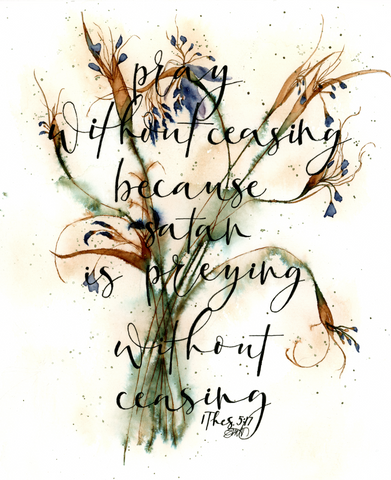 pray
without ceasing
because
satan
is preying
without
ceasing
1Thes. 5:17